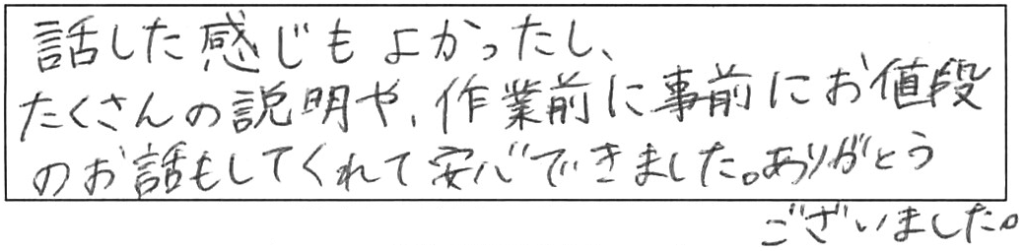 話した感じもよかったし、
たくさんの説明や、作業前に事前にお値段
のお話もしてくれて安心できました。ありがとう
ございました。